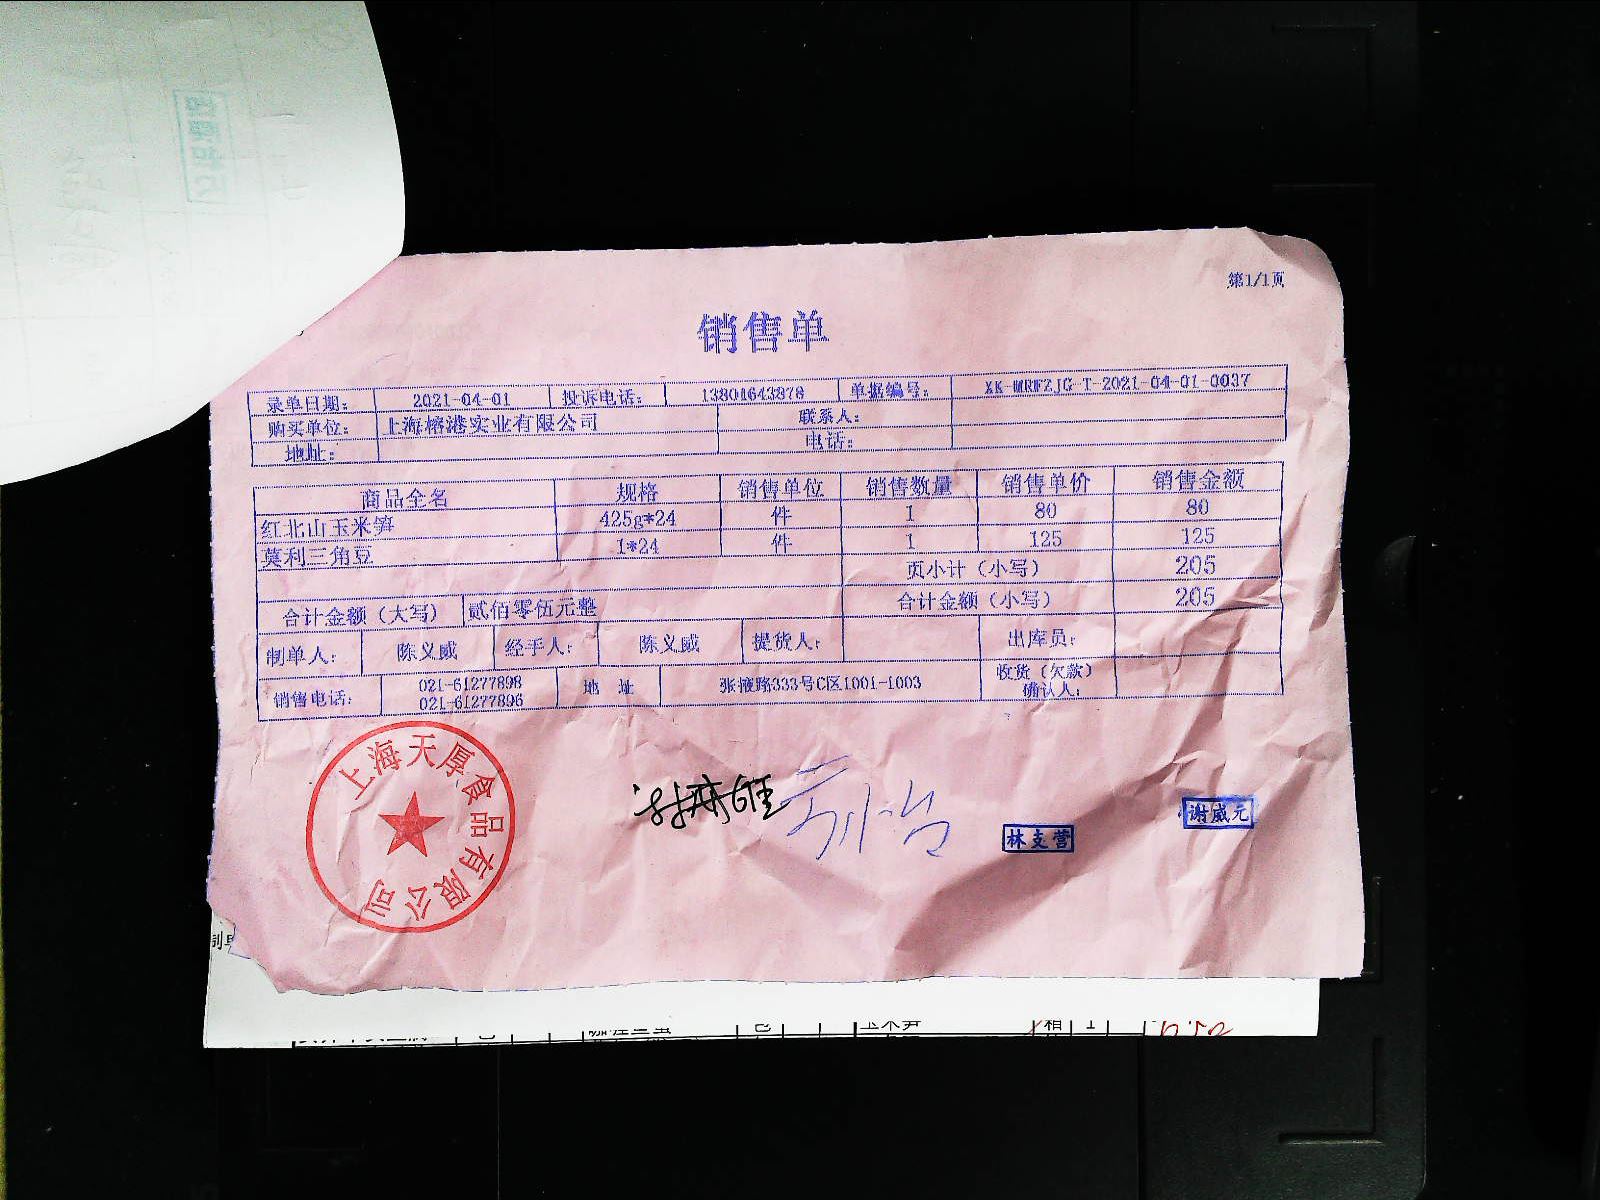 第1/1页
销售单
录单日期： 2021-04-01 投诉电话： 13801643878 单据编号： XK-WRWZJG-T-2021-04-01-0037
购买单位： 上海榕港实业有限公司 联系人：
地址： 电话：
商品全名 规格 销售单位 销售数量 销售单价 销售金额
红北山玉米笋 425g*24 件 1 80 80
莫利三角豆 1*24 件 1 125 125
页小计（小写） 205
合计金额（大写） 贰佰零伍元整 合计金额（小写） 205
制单人： 陈义威 经手人： 陈义威 提货人： 出库员：
销售电话： 021-61277898 021-61277896 地 址 张掖路333号C区1001-1003 收货（欠款）确认人：
上海天厚食品有限公司
林支营
谢威元
制单
玉米笋 箱 1